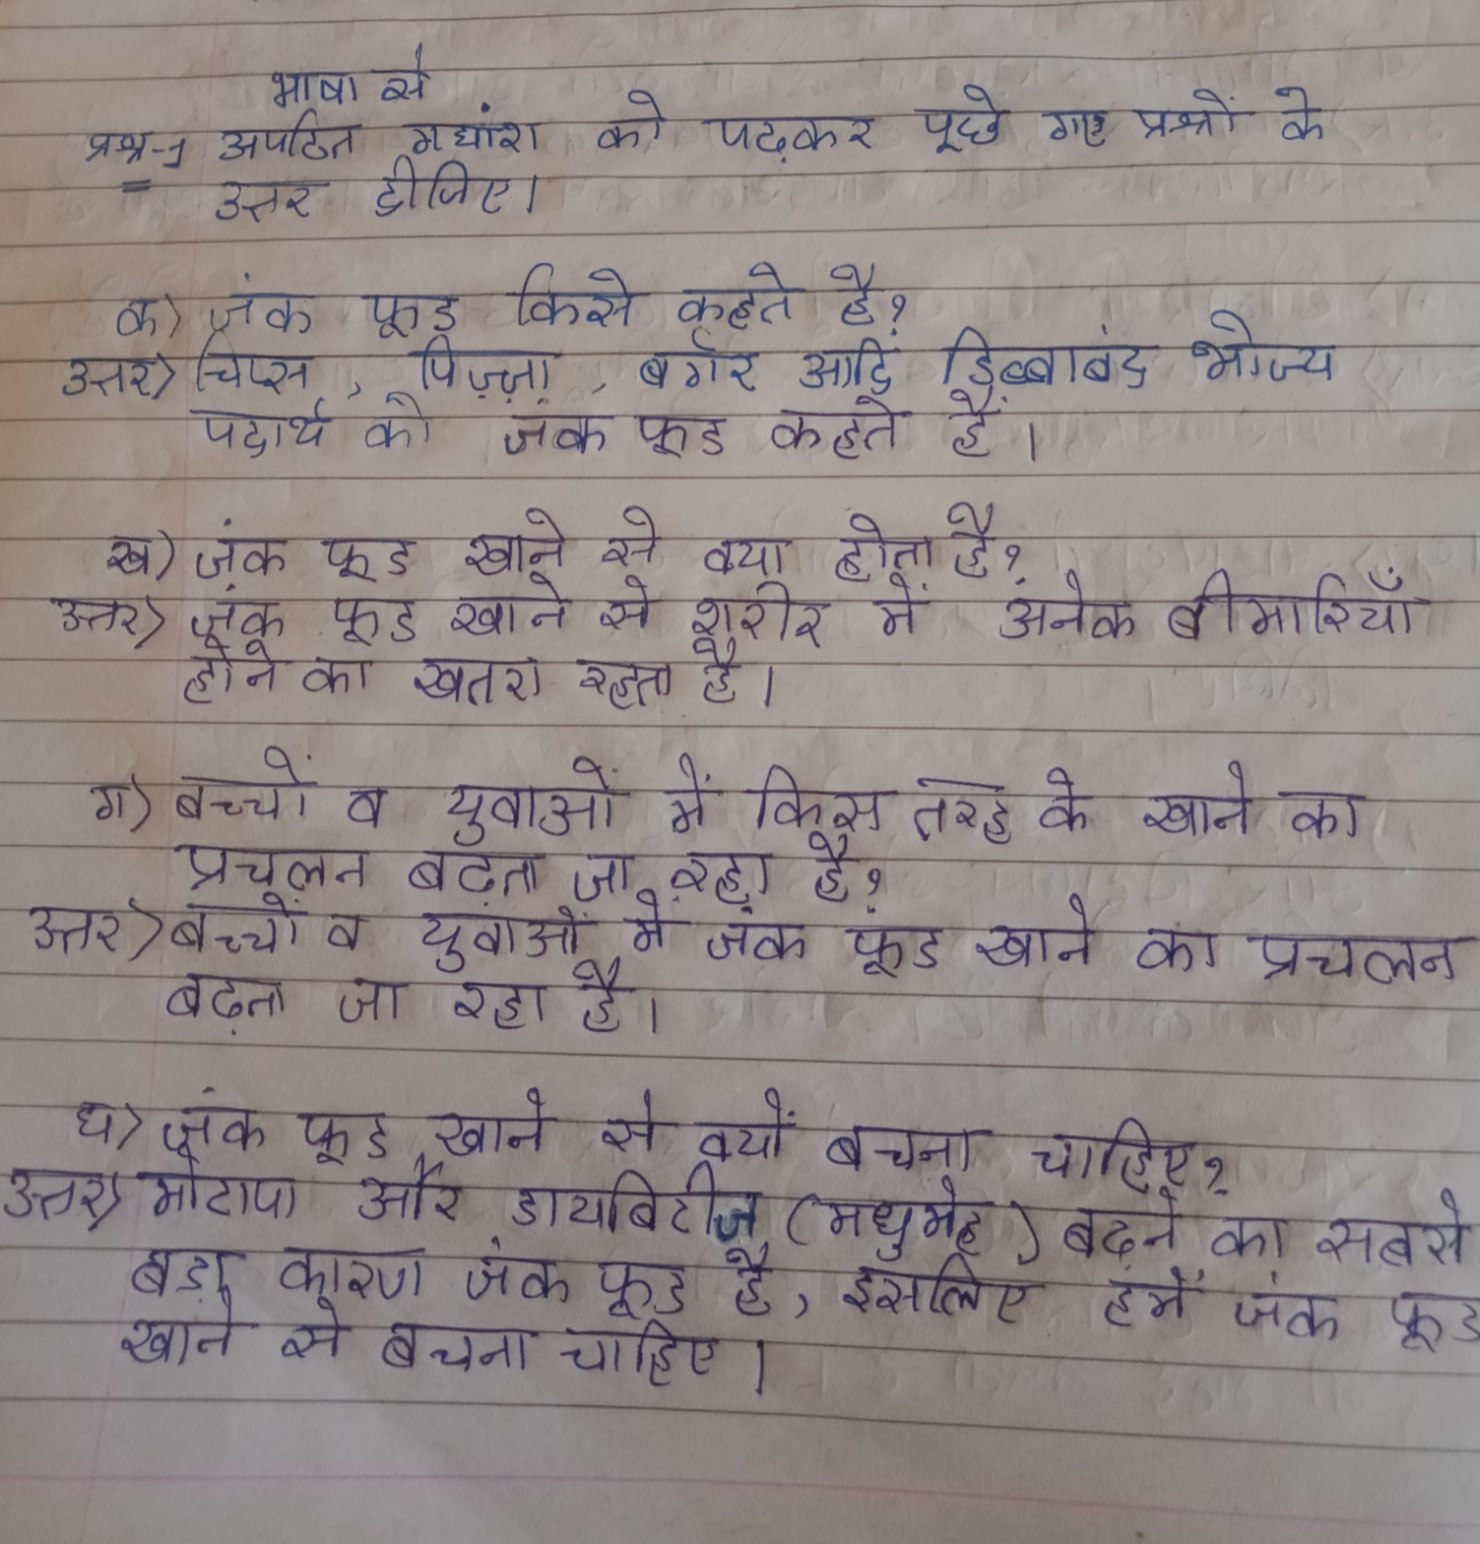 भाषा से
प्रश्न-1 अपठित गद्यांश को पढ़कर पूछे गए प्रश्नों के
उत्तर दीजिए।
क) जंक फूड किसे कहते है?
उत्तर) चिप्स, पिज़्ज़ा, बर्गर आदि डिब्बाबंद भोज्य
पदार्थ को जंक फूड कहते हैं।
ख) जंक फूड खाने से क्या होता है?
उत्तर) जंक फूड खाने से शरीर में अनेक बीमारियाँ
होने का खतरा रहता है।
ग) बच्चों व युवाओं में किस तरह के खाने का
प्रचलन बढ़ता जा रहा है?
उत्तर) बच्चों व युवाओं में जंक फूड खाने का प्रचलन
बढ़ता जा रहा है।
घ) जंक फूड खाने से क्यों बचना चाहिए?
उत्तर) मोटापा और डायबिटीज (मधुमेह) बढ़ने का सबसे
बड़ा कारण जंक फूड है, इसलिए हमें जंक फूड
खाने से बचना चाहिए।